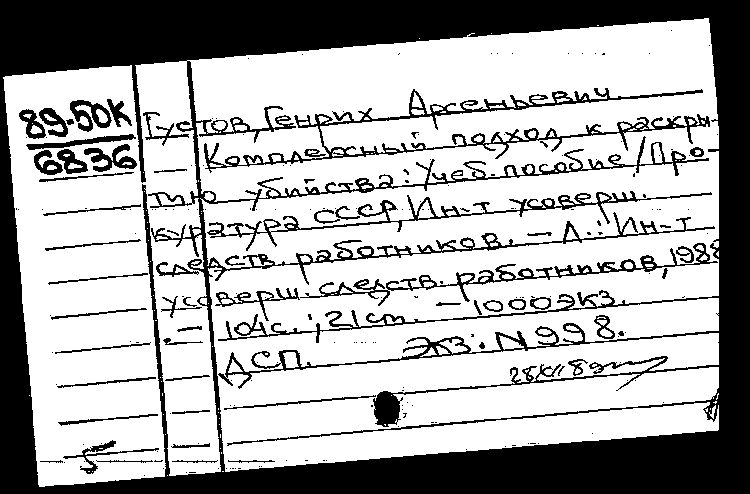 89-50К
6836
Густов, Генрих Арсеньевич.
— Комплексный подход к раскры-
тию убийства: Учеб. пособие / Про-
куратура СССР, Ин-т усоверш.
следств. работников. — Л.: Ин-т
усоверш. следств. работников, 1988
. — 104с.; 21 ст. — 1000экз.
ДСП. Экз: N 998.
5